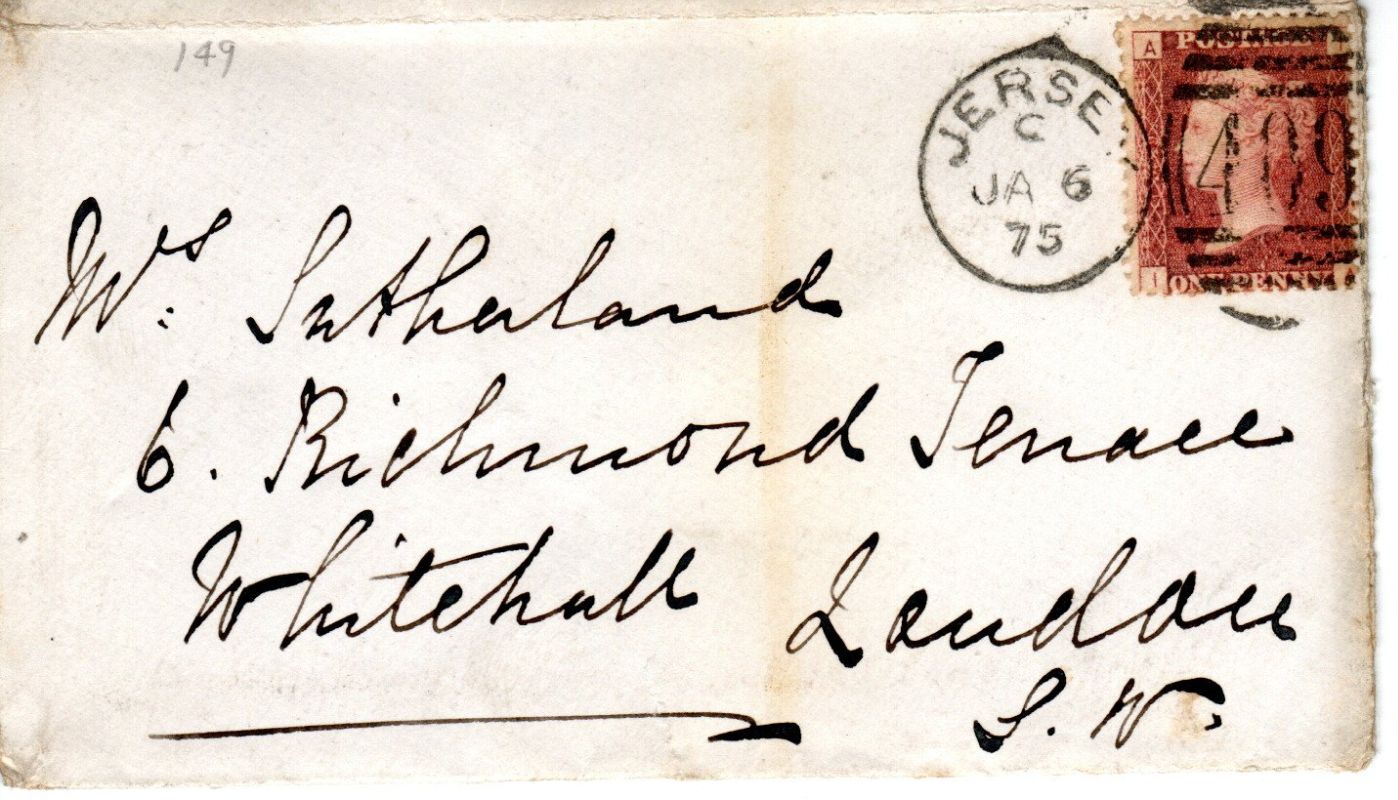 149
JERSEY
C
JA 6
75
A POSTAGE
409
I ONE PENNY A
Mrs. Sutherland
6. Richmond Terrace
Whitehall London
S. W.